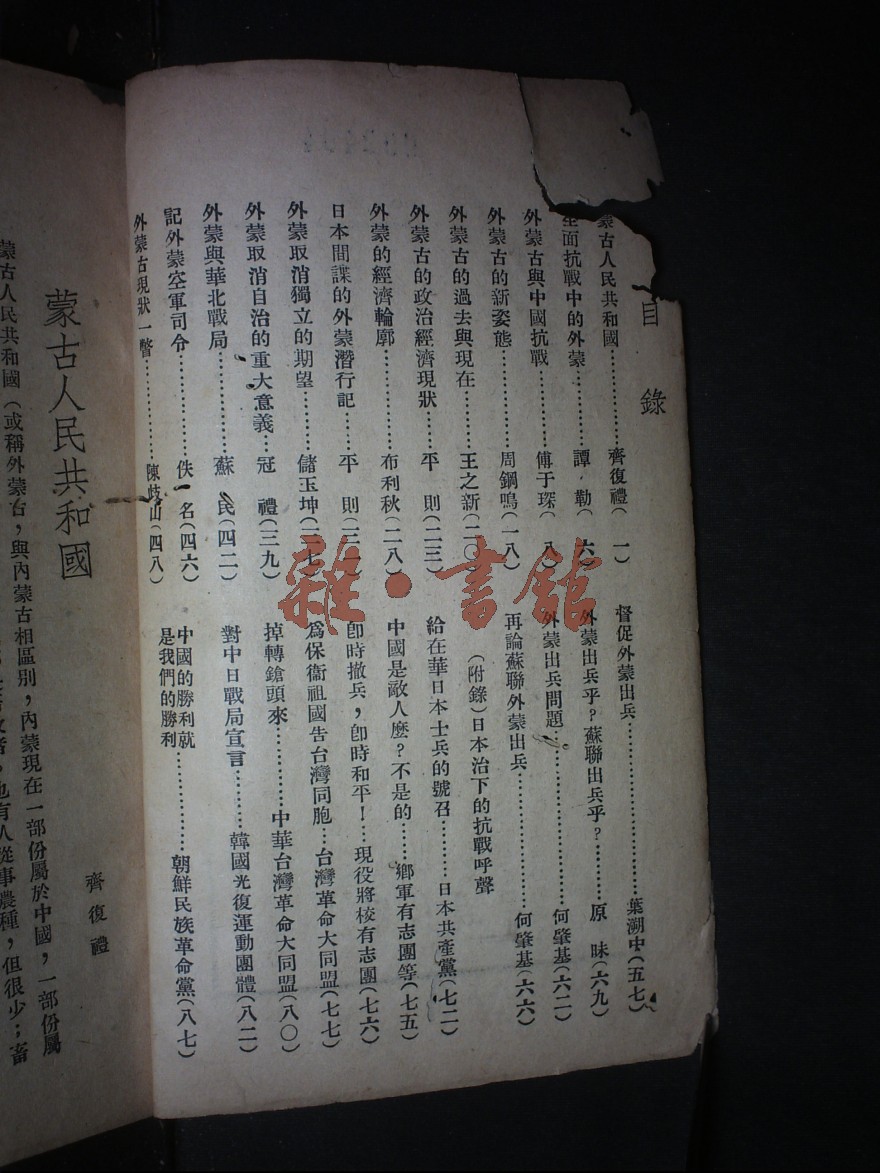 目錄
蒙古人民共和國…………齊復禮(一)
全面抗戰中的外蒙………譚勒(六)
外蒙古與中國抗戰………傅于琛(八)
外蒙古的新姿態…………周鋼鳴(一八)
外蒙古的過去與現在……王之新(二〇)
外蒙古的政治經濟現狀…平則(二三)
外蒙的經濟輪廓…………布利秋(二八)
日本間諜的外蒙潛行記…平則(三一)
外蒙取消獨立的期望……儲玉坤(三七)
外蒙取消自治的重大意義…冠禮(三九)
外蒙與華北戰局…………蘇民(四二)
記外蒙空軍司令…………佚名(四六)
外蒙古現狀一瞥…………陳歧山(四八)
督促外蒙出兵……………葉溯中(五七)
外蒙出兵乎?蘇聯出兵乎?………原昧(六九)
外蒙出兵問題……………何肇基(六二)
再論蘇聯外蒙出兵………何肇基(六六)
(附錄)日本治下的抗戰呼聲
給在華日本士兵的號召………日本共產黨(七二)
中國是敵人麼?不是的……鄉軍有志團等(七五)
卽時撤兵,卽時和平!…現役將校有志團(七六)
爲保衞祖國告台灣同胞…台灣革命大同盟(七七)
掉轉鎗頭來………中華台灣革命大同盟(八〇)
對中日戰局宣言………韓國光復運動團體(八二)
中國的勝利就
是我們的勝利……………朝鮮民族革命黨(八七)
蒙古人民共和國
齊復禮
蒙古人民共和國(或稱外蒙古,與內蒙古相區別,內蒙現在一部份屬於中國,一部份屬
也有人從事農種,但很少;畜
雜·書館